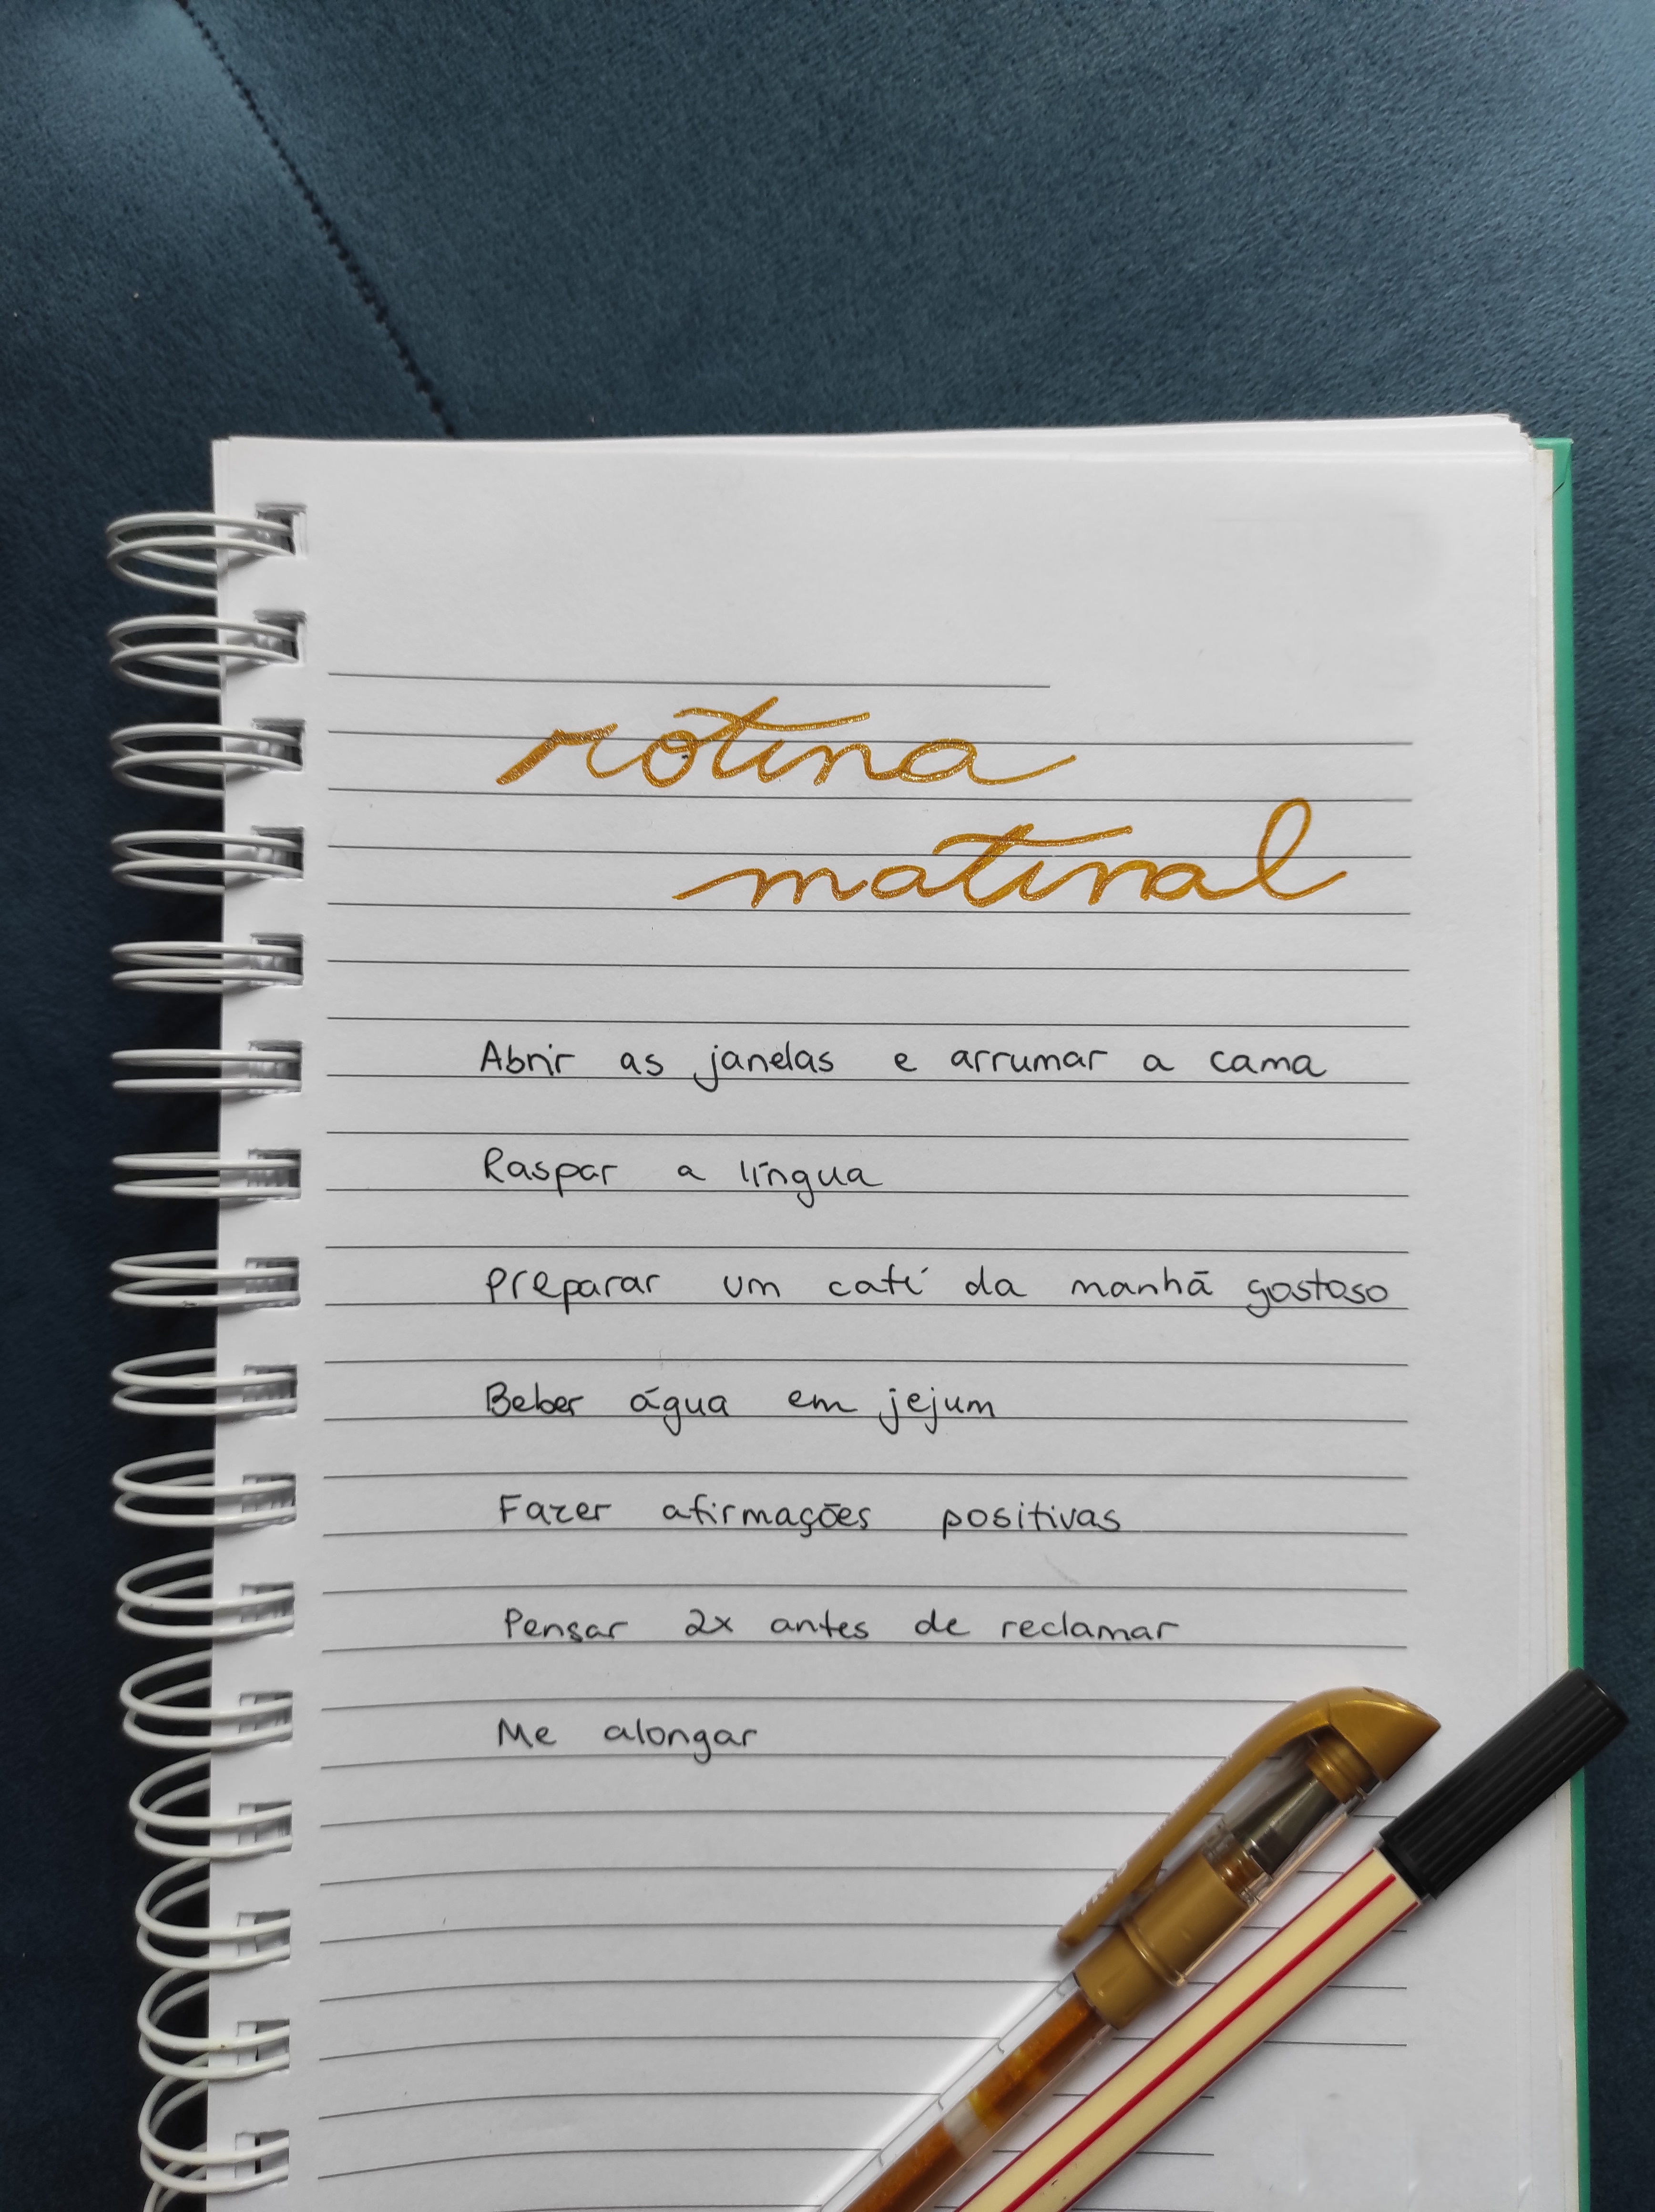 rotina
matinal
Abrir as janelas e arrumar a cama
Raspar a língua
Preparar um café da manhã gostoso
Beber água em jejum
Fazer afirmações positivas
Pensar 2x antes de reclamar
Me alongar